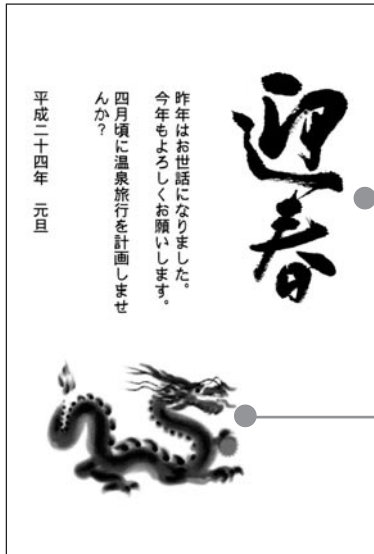 迎春
昨年はお世話になりました。
今年もよろしくお願いします。
四月頃に温泉旅行を計画しませ
んか？
平成二十四年　元旦